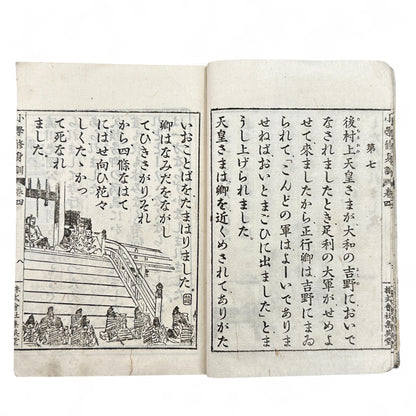 小學修身訓 卷四
株式會社集英堂
第七
後村上天皇さまが大和の吉野においで
なされましたとき足利の大軍がせめよ
せて來ましたから正行卿は、吉野にまゐ
られて、「こんどの軍はよーいでありま
せねばおいとまごひに出ました」とま
うし上げられました。
天皇さまは卿を近くめされてありがた
いおことばをたまはりました。圖
卿はなみだをながし
てひきさがりそれ
から四條なはて
にはせ向ひ花々
しくたゝかつ
て死なれ
ました。
小學修身訓 卷四
八
株式會社集英堂